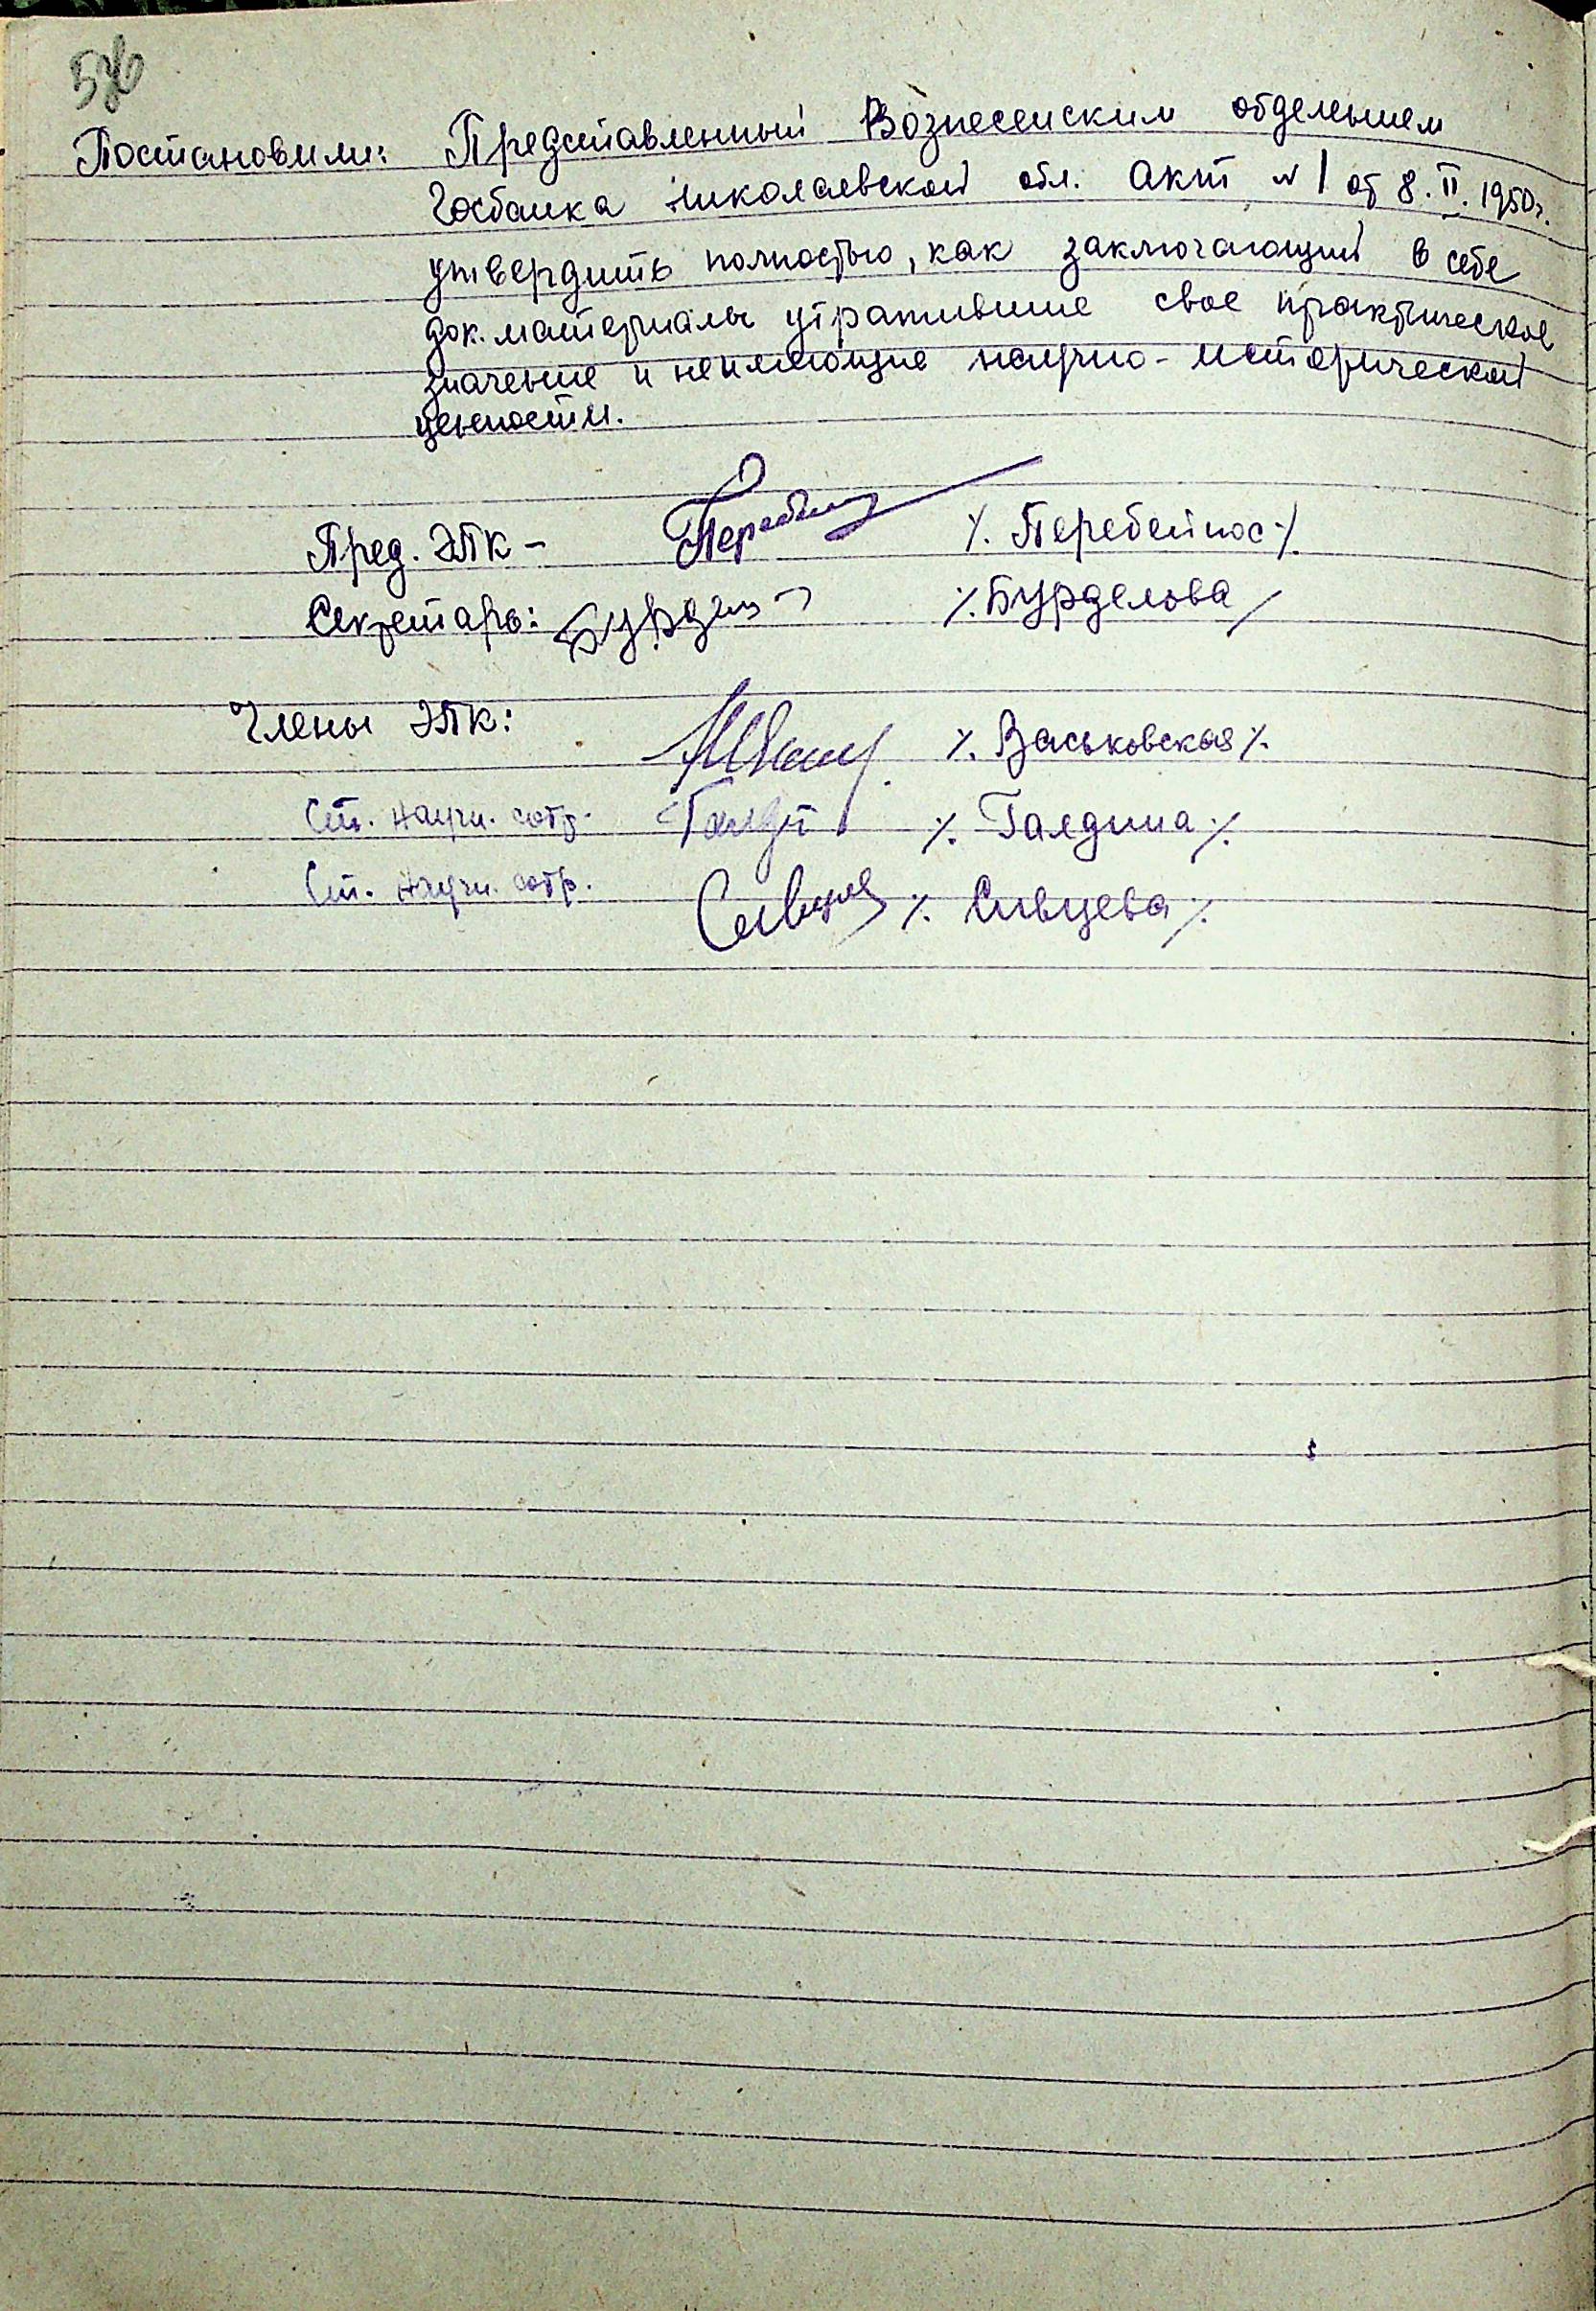 Постановили: Представленный Вознесенским отделением
Госбанка Николаевской обл. Акт № 1 от 8.II.1950г.
утвердить полностью, как заключающий в себе
док. материалы утратившие свое практическое
значение и неимеющие научно-исторической
ценности.
Пред. ЭПК - ⁒. Перебейнос ⁒.
Секретарь: ⁒. Бурделова /
Члены ЭПК: ⁒. Васьковская ⁒.
Ст. научн. сотр. ⁒. Галдина ⁒.
Ст. научн. сотр. ⁒. Сивцева ⁒.